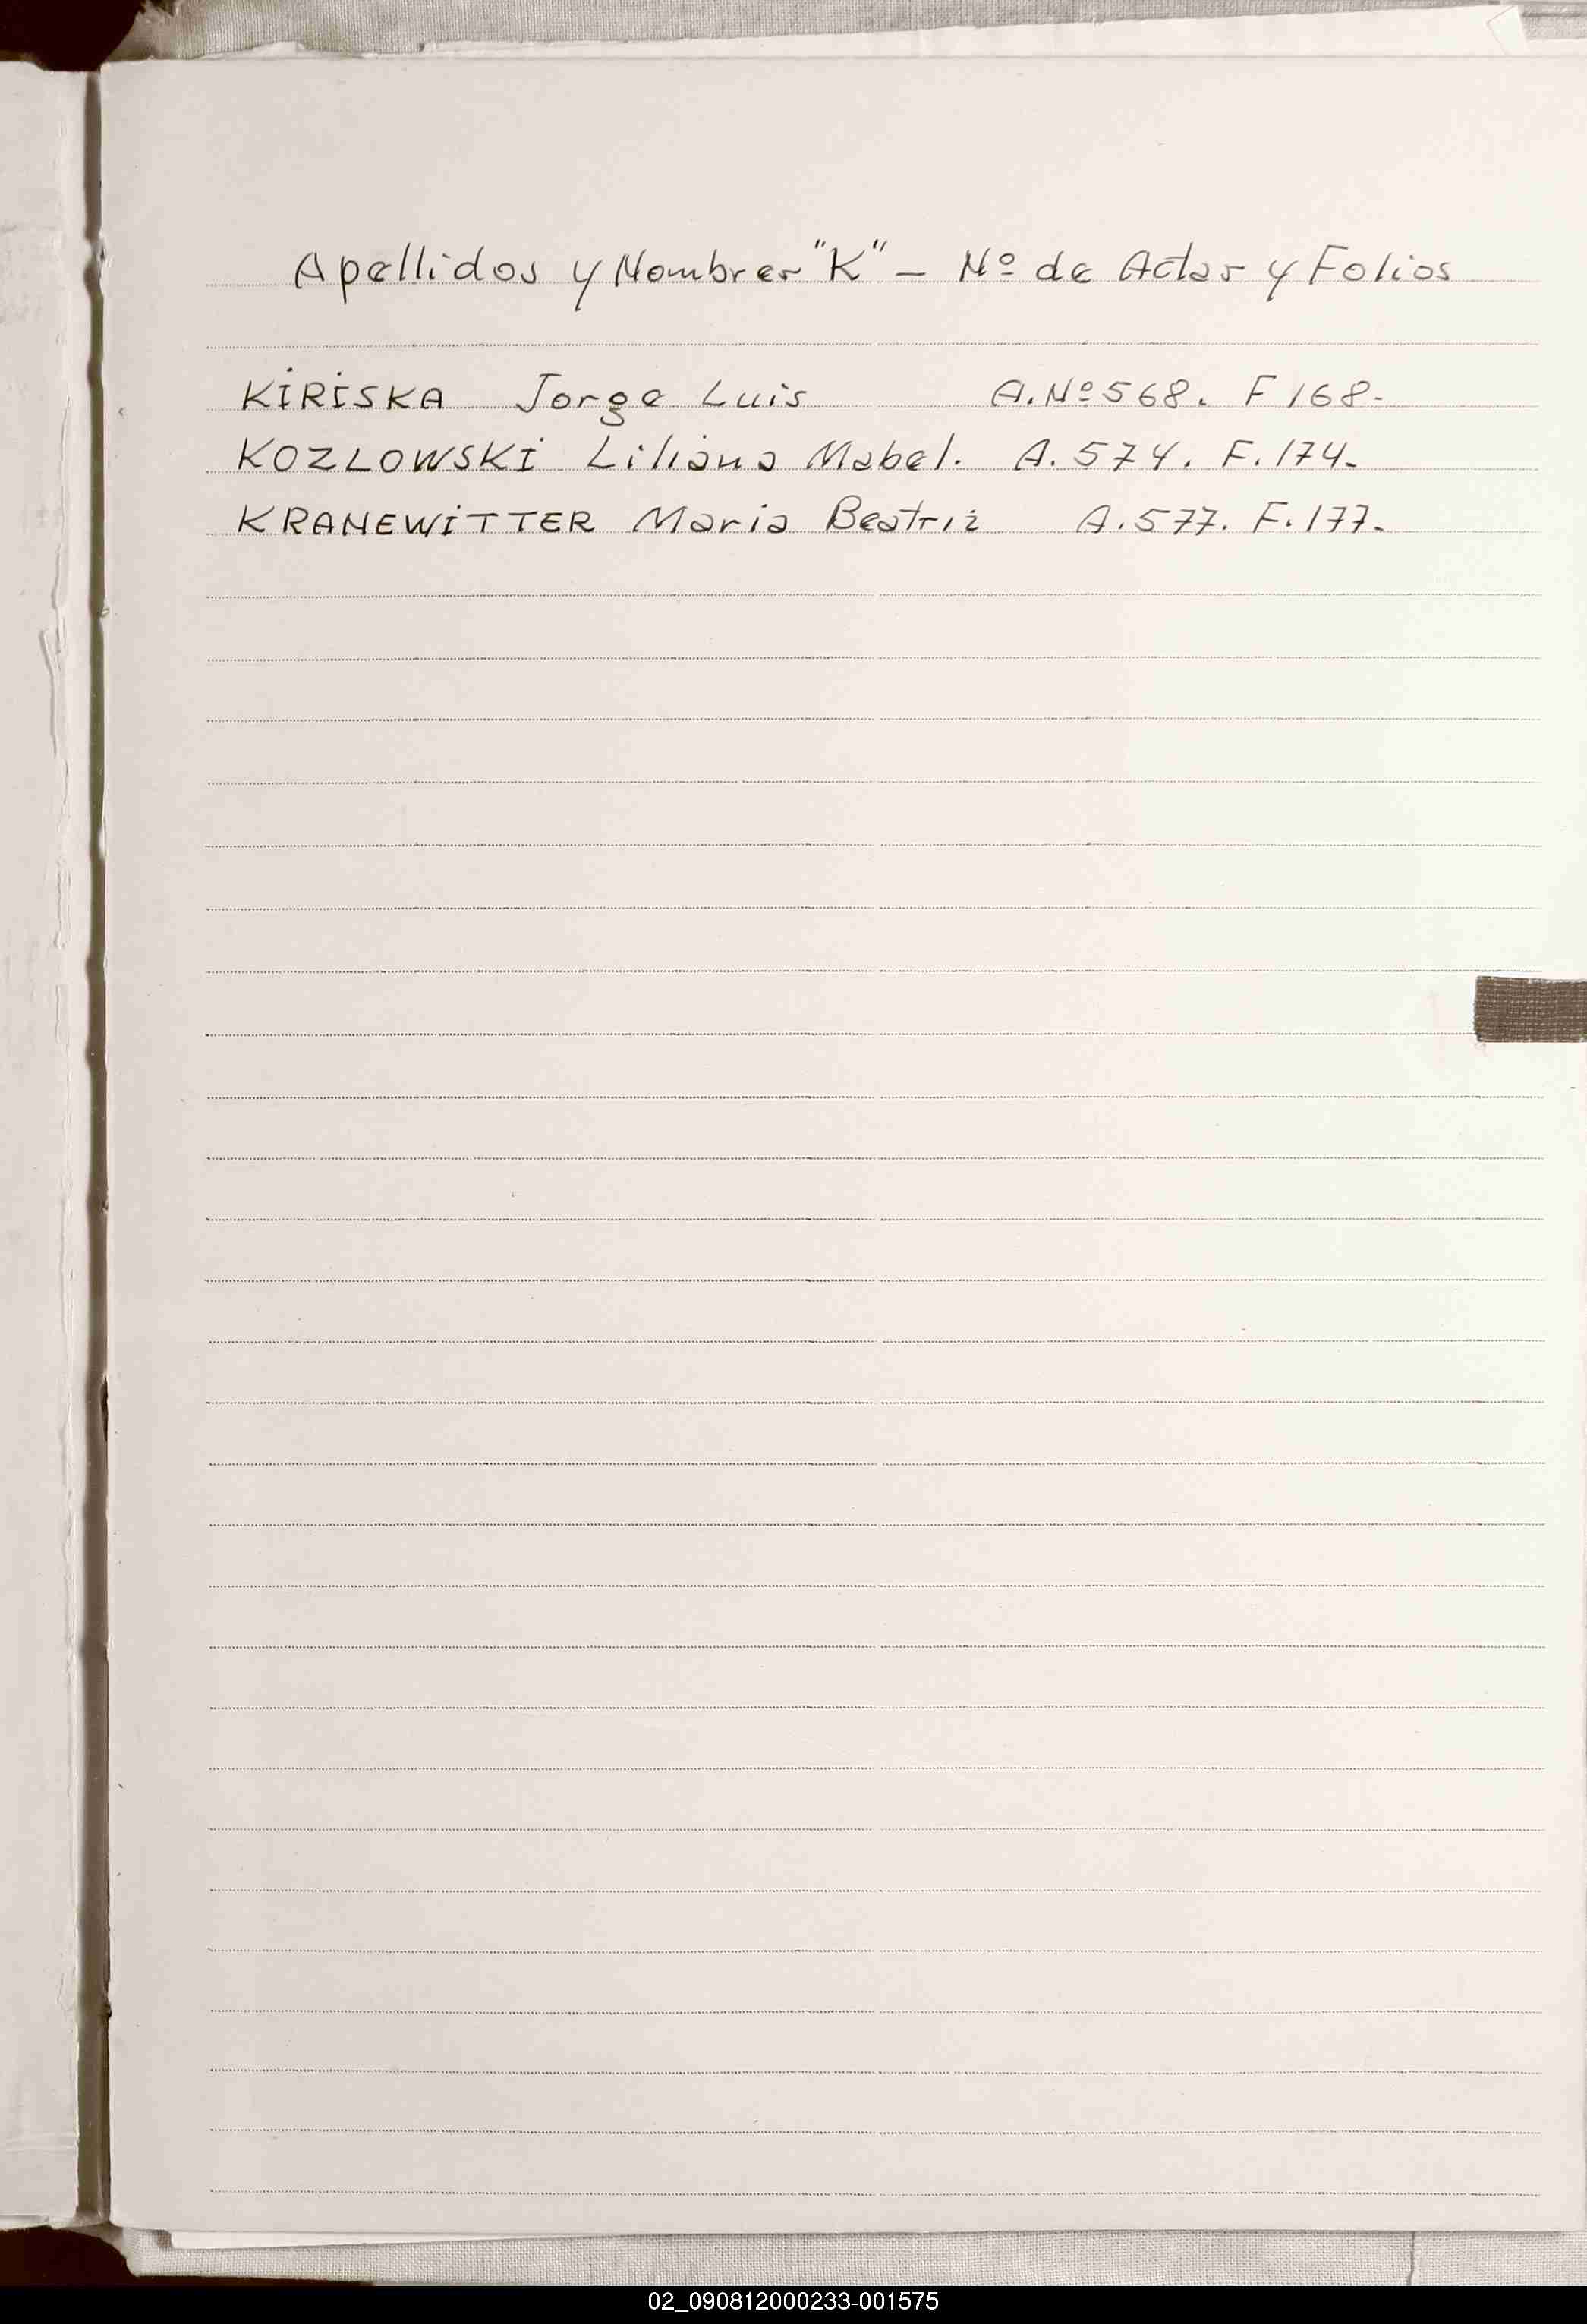 Apellidos y Nombres "K" - Nº de Actas y Folios
KIRISKA Jorge Luis A. Nº 568. F 168-
KOZLOWSKI Liliana Mabel. A. 574. F. 174-
KRANEWITTER Maria Beatriz A. 577. F. 177-
02_090812000233-001575